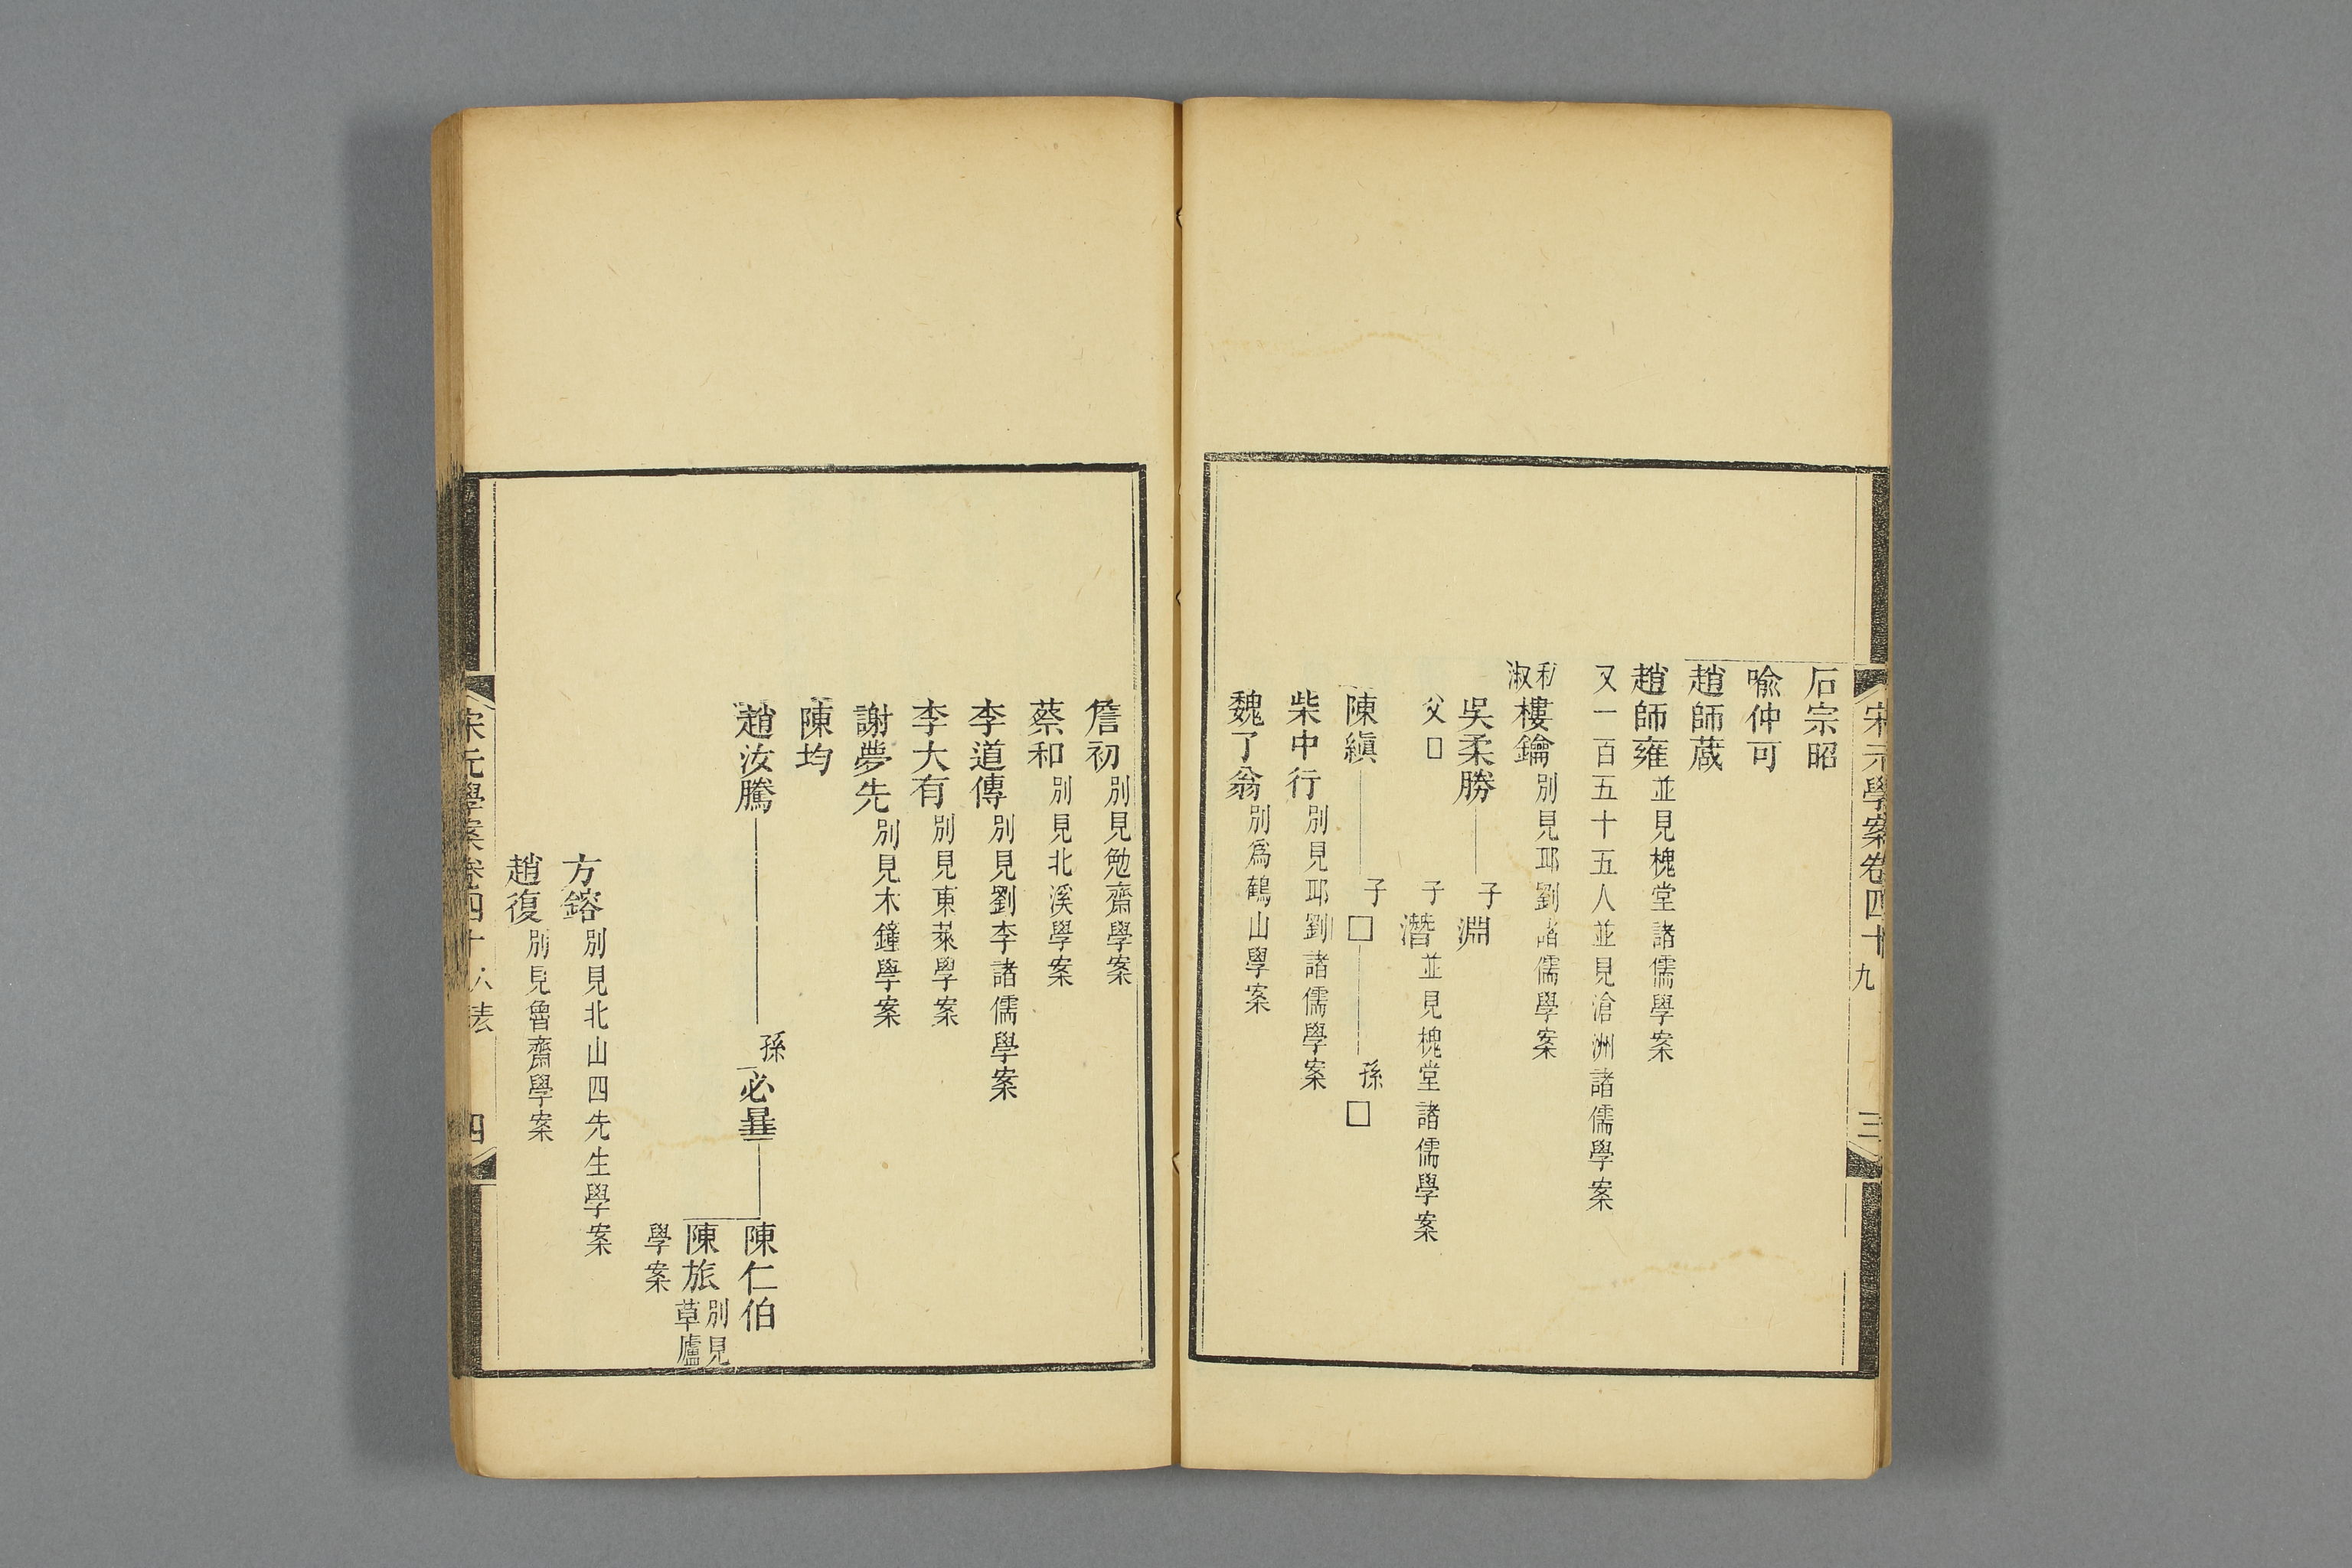 宋元學案卷四十九 三
石宗昭
喻仲可
趙師蒧
趙師雍並見槐堂諸儒學案
又一百五十五人並見滄洲諸儒學案
私淑樓鑰別見邱劉諸儒學案
吳柔勝 子淵
父□ 子潛並見槐堂諸儒學案
陳縝 子□ 孫□
柴中行別見邱劉諸儒學案
魏了翁別爲鶴山學案
詹初別見勉齋學案
蔡和別見北溪學案
李道傳別見劉李諸儒學案
李大有別見東萊學案
謝夢先別見木鐘學案
陳均
趙汝騰 孫必曅 陳仁伯
陳旅別見草廬
學案
方鎔別見北山四先生學案
趙復別見魯齋學案
宋元學案卷四十 四